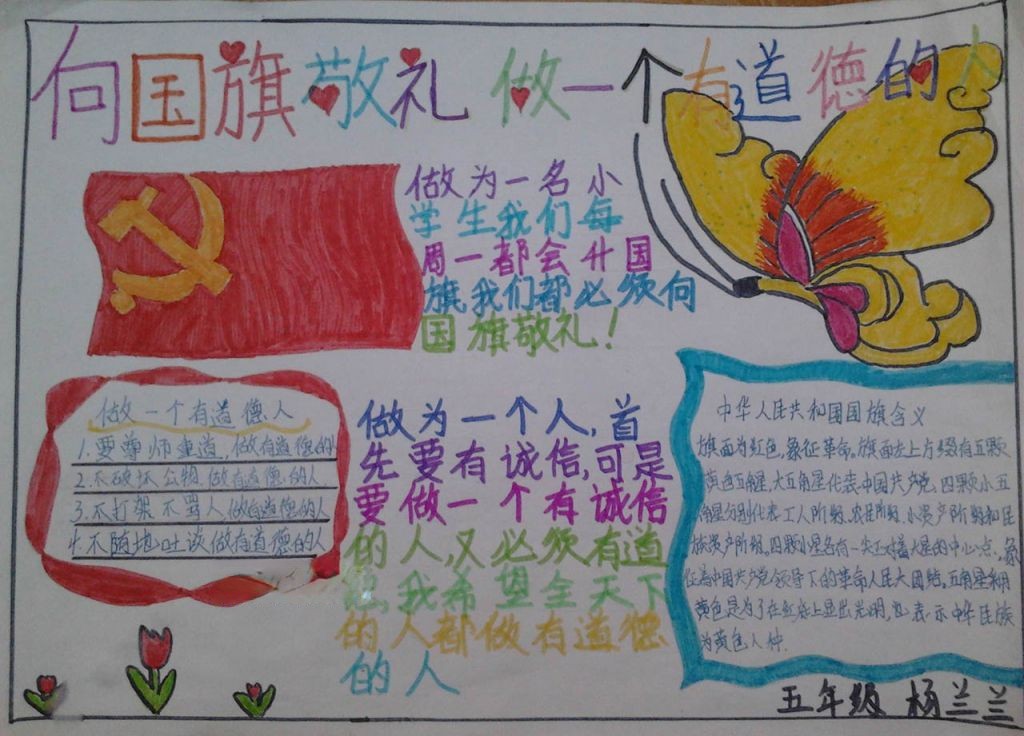 向国旗敬礼 做一个有道德的人
做为一名小
学生我们每
周一都会升国
旗,我们都必须向
国旗敬礼!
做一个有道德人
1.要尊师重道,做有道德的
2.不破坏公物,做有道德的人
3.不打架不骂人做有道德的人
4.不随地吐谈做有道德的人
做为一个人,首
先要有诚信,可是
要做一个有诚信
的人,又必须有道
德,我希望全天下
的人都做有道德
的人
中华人民共和国国旗含义
旗面为红色,象征革命,旗面左上方缀有五颗
黄色五角星,大五角星代表中国共产党,四颗小五
角星分别代表工人阶级、农民阶级、小资产阶级和民
族资产阶级。四颗小星各有一尖正对着大星的中心点,象
征着中国共产党领导下的革命人民大团结,五角星用
黄色是为了在红底上显出光明,也表示中华民族
为黄色人种.
五年级 杨兰兰